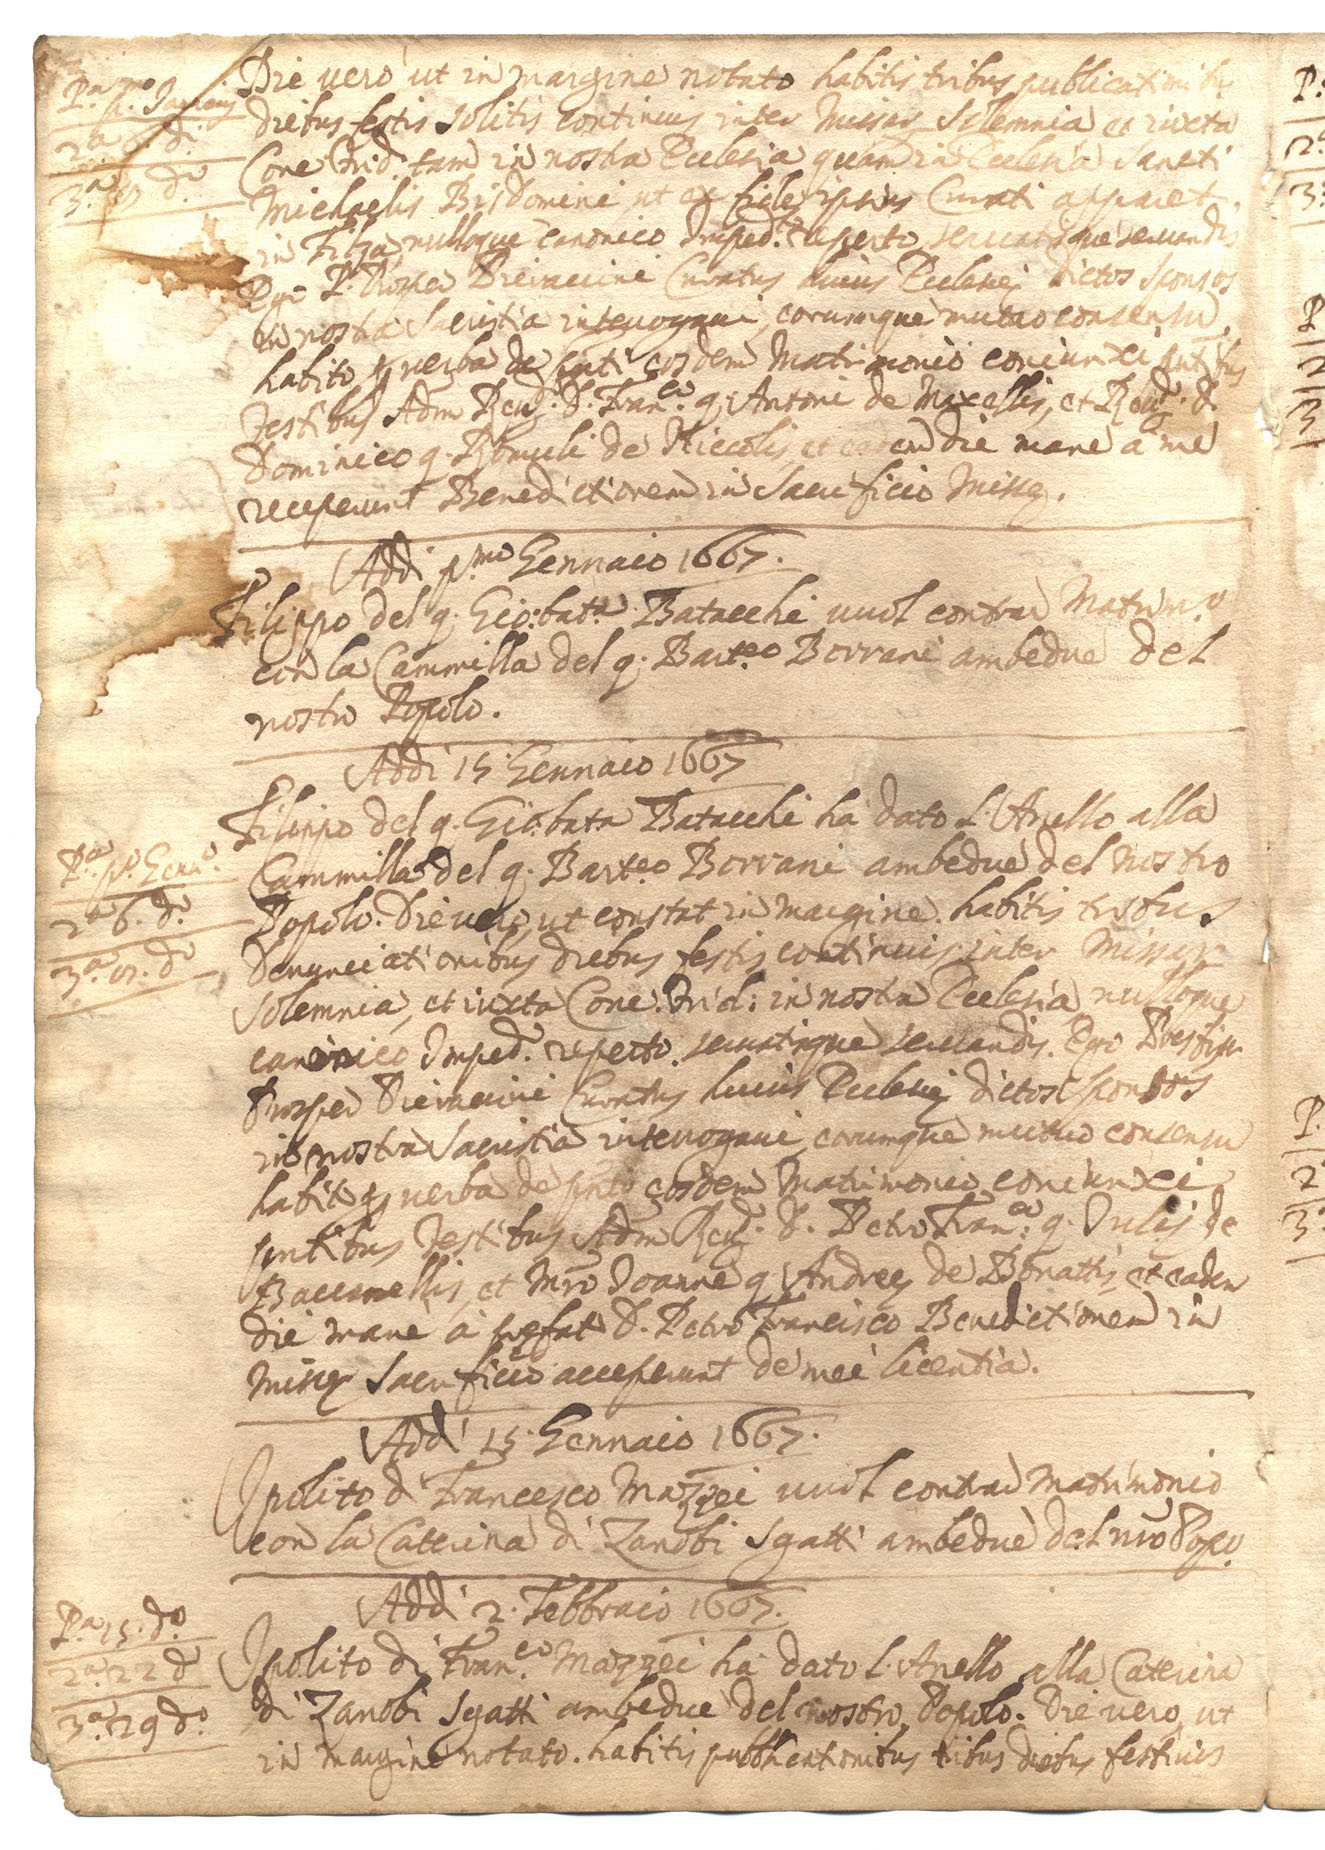 Die vero ut in margine notato habitis tribus publicationibus
diebus festis solitis continuis inter Missar. Solemnia et iuxta
Conc. Trid. tam in nostra Ecclesia quam in Ecclesia Sancti
Michaelis Bisdomini ut ex fide ipsius Curati apparet
in Filza, nulloque canonico Imped.to reperto, servatisque servandis
Ego P. Prosper Pieraccini Curatus huius Ecclesię dictos sponsos
in nostra Sacristia interrogavi, eorumque mutuo consensu
habito p verba de pnti eosdem Matrimonio coniunxi pntibus
Testibus Adm Rev.d D. Fran.co q. Antoni de Mexellis, et Rev.d D.
Dominico q. Romuli de Niccolis, et eadem die mane a me
receperunt Benedictionem in Sacrificio Missę.
Addi p.mo Gennaio 1667.
Filippo del q. Gio:bata Batacchi vuol contrar Matrim.o
con la Cammilla del q. Bart.eo Borrani ambedue del
nostro Popolo.
Addi 15 Gennaio 1667
P.a p.o Genn.o
2.a 6. d.o
3.a d.o
Filippo del q. Gio:bata Batacchi ha dato l'Anello alla
Cammilla del q. Bart.eo Borrani ambedue del nostro
Popolo. Die vero, ut constat in margine. habitis tribus
denunciationibus diebus festis continuis inter Missar.
solemnia, et iuxta Conc. Trid: in nostra Ecclesia nulloque
canonico Imped.to reperto. servatisque servandis. Ego
Prosper Pieraccini Curatus huius Ecclesię dictos sponsos
in nostra Sacristia interrogavi, eorumque mutuo consensu
habito p verba de pnti eosdem Matrimonio coniunxi
pntibus Testibus Adm Rev.d D. Petro Fran.co q. Julij de
Baccanellis, et Mro Joanne q. Andreę de Donattis et eadem
die mane a prefato D. Petro Francisco Benedictionem in
Missę Sacrificio acceperunt de mei licentia.
Addi 15 Gennaio 1667.
Ipolito di Francesco Mazzei vuol contrar Matrimonio
con la Caterina di Zanobi Sgatti ambedue del nro Popo.
Addi 2. Febbraio 1667.
P.a 15. d.o
2.a 22 d.o
3.a 29 d.o
Ipolito di Fran.co Mazzei ha dato l'Anello alla Caterina
di Zanobi Sgatti ambedue del nostro Popolo. Die vero, ut
in margine notato. habitis publicationibus tribus diebus festivis